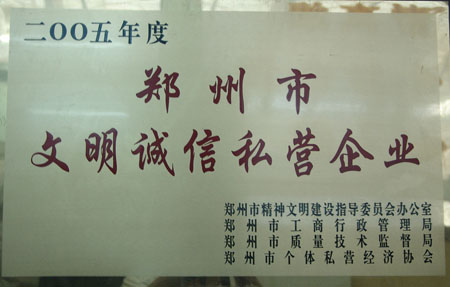 二〇〇五年度
郑州市
文明诚信私营企业
郑州市精神文明建设指导委员会办公室
郑州市工商行政管理局
郑州市质量技术监督局
郑州市个体私营经济协会